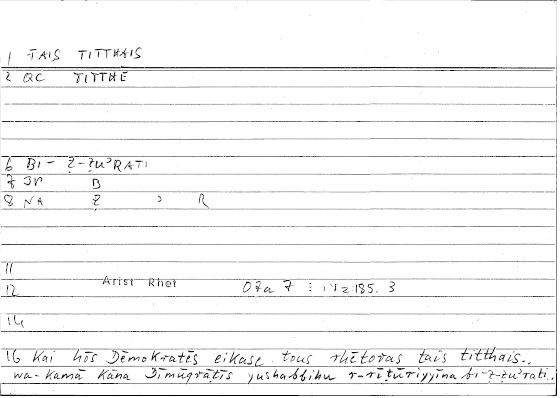 1 TAIS TITTHAIS
2 QC TITTHE
6 BI- Ẓ-ẒUʾRATI
7 3P B
8 NA Ẓ ʾ R
11
12 Arist Rhet 07a 7 : 185. 3
14
16 Kai hōs Dēmokratēs eikase tous rhētoras tais titthais..
wa-kamā kāna Dīmūqrāṭīs yushabbihu r-rīṭūriyyīna bi-ẓ-ẓuʾrati..